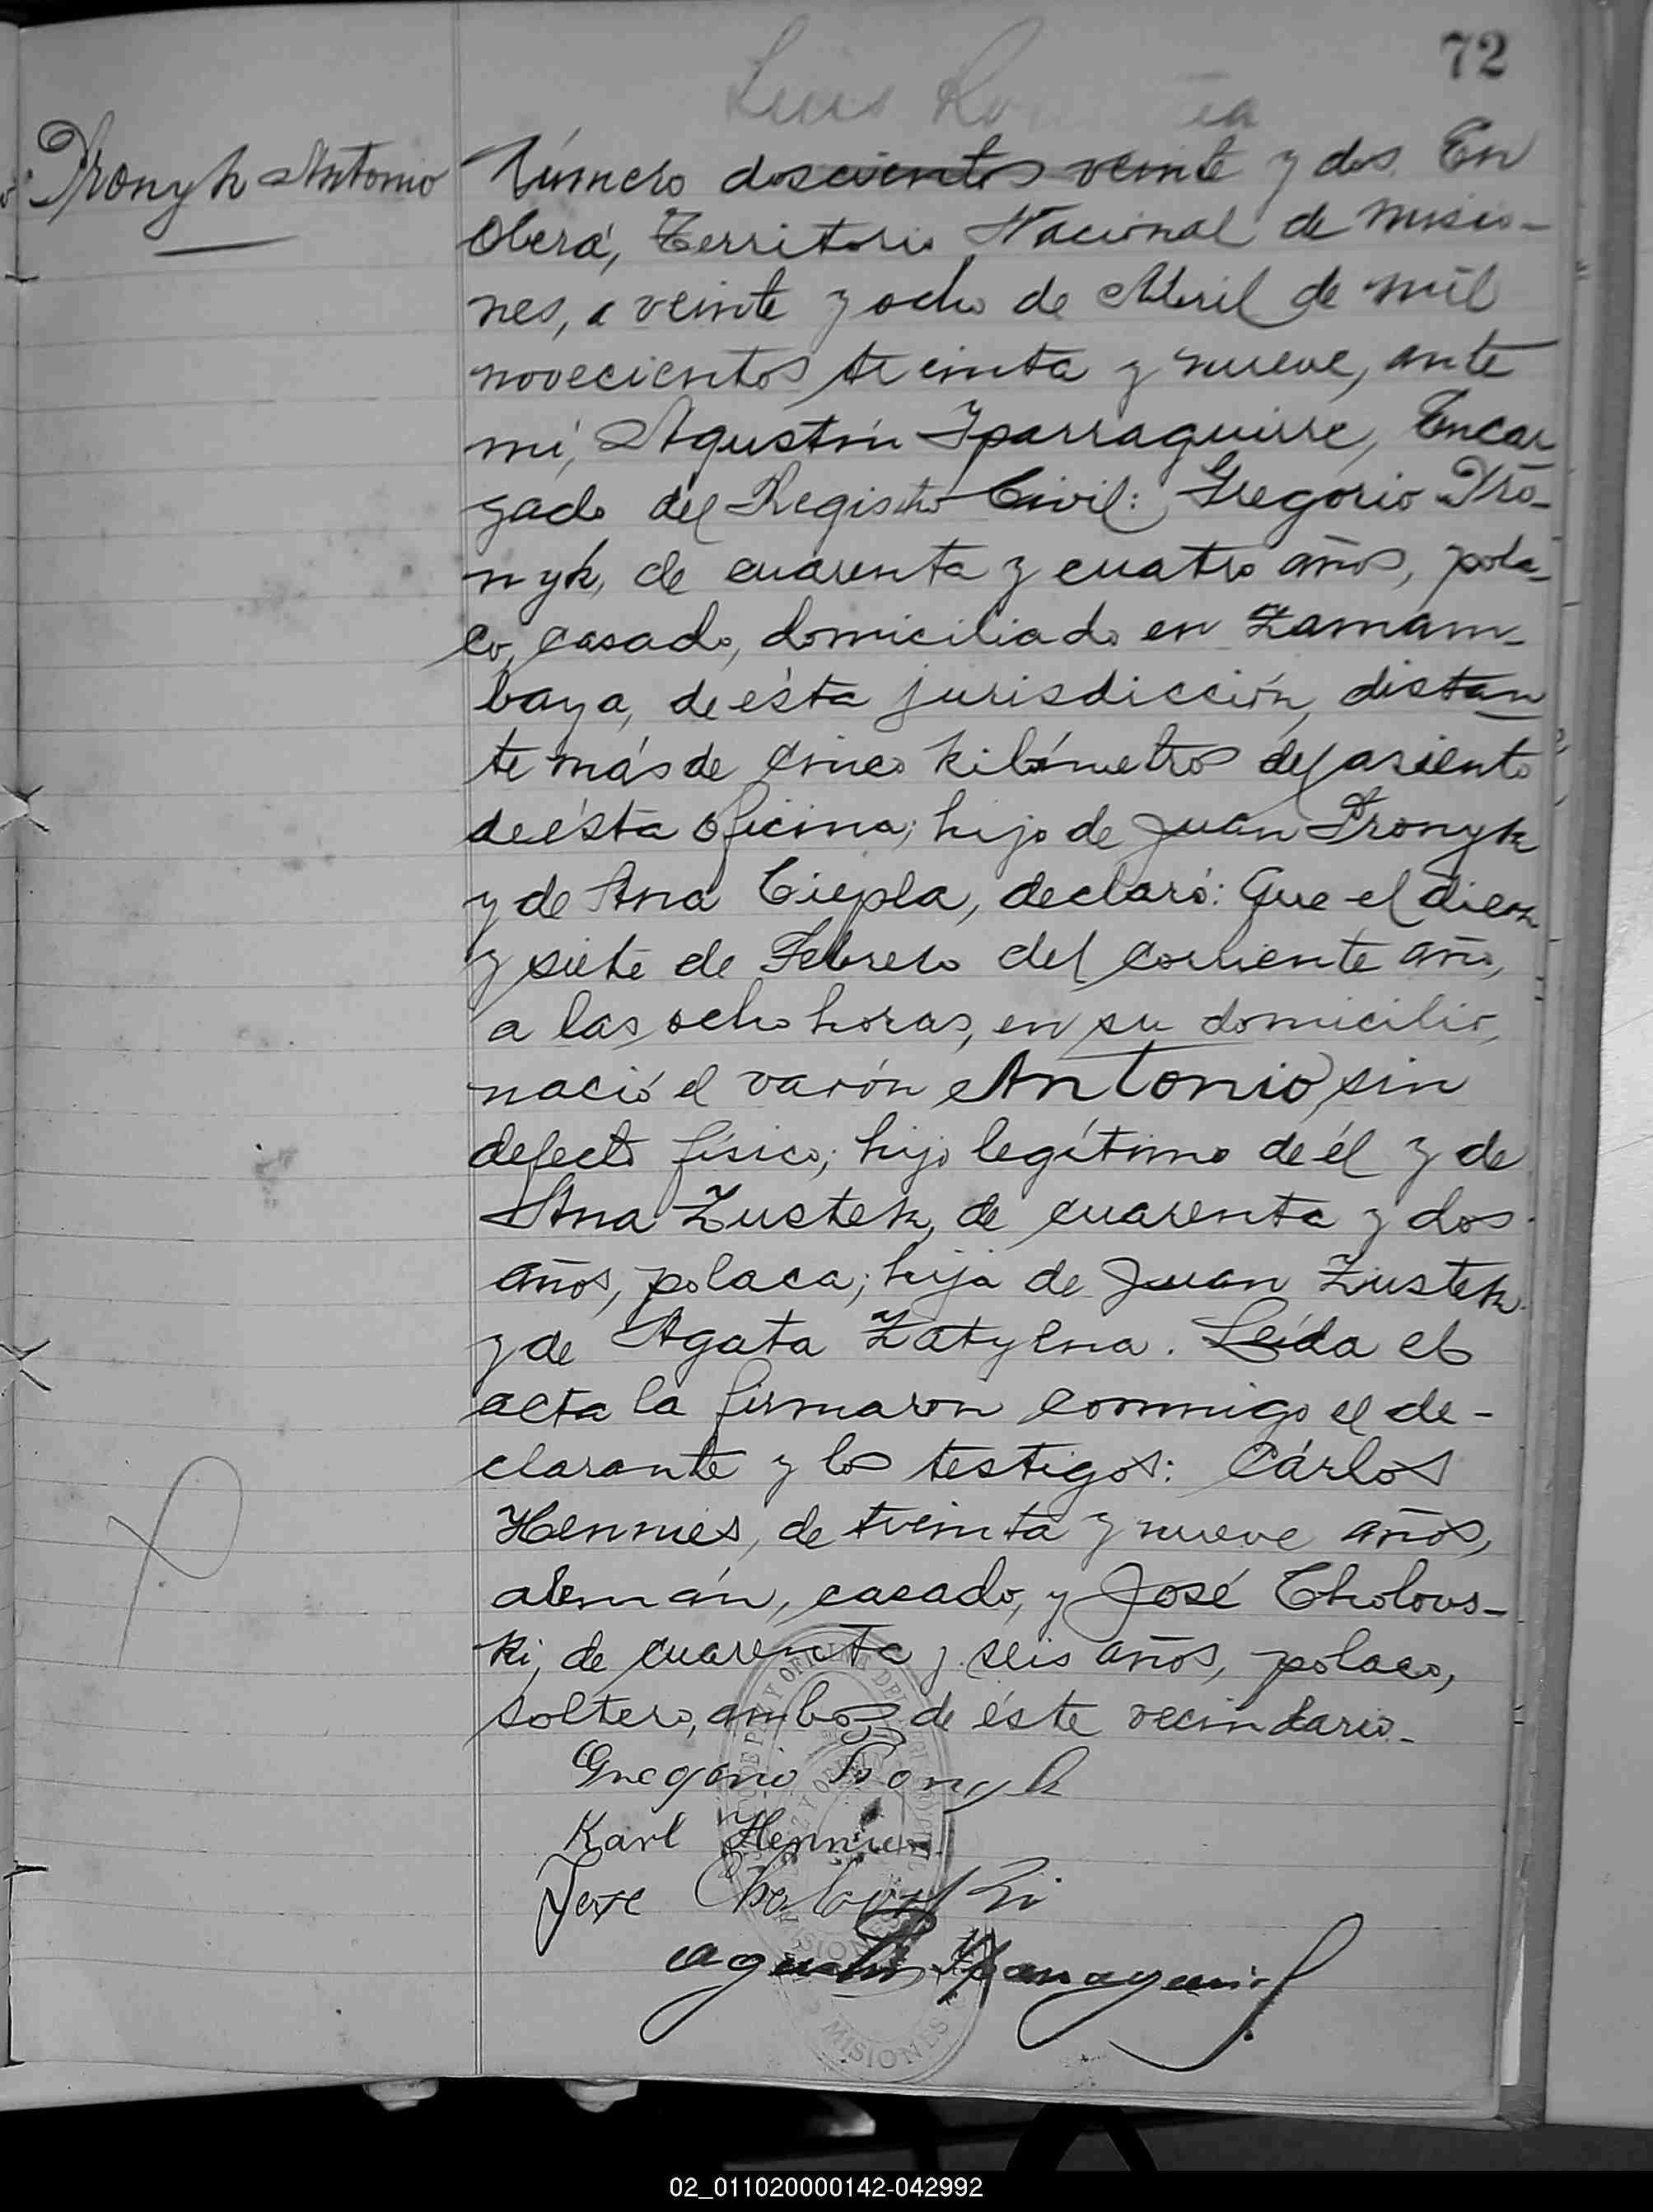 72
Luis
Pronyk Antonio
Número doscientos veinte y dos. En
Oberá, Territorio Nacional de Misio-
nes, a veinte y ocho de Abril de mil
novecientos treinta y nueve, ante
mí, Agustín Yparraguirre, Encar
gado del Registro Civil: Gregorio Pro-
nyk, de cuarenta y cuatro años, pola-
co, casado, domiciliado en Zamam-
baya, de ésta jurisdicción, distan
te más de cinco kilómetros del asiento
de ésta oficina; hijo de Juan Pronyk
y de Ana Ciepla, declaró: Que el diez
y siete de Febrero del corriente año,
a las ocho horas, en su domicilio,
nació el varón Antonio, sin
defecto físico; hijo legítimo de él y de
Ana Zustek, de cuarenta y dos
años, polaca; hija de Juan Zustek
y de Agata Zatylna. Leída el
acta la firmaron conmigo el de-
clarante y los testigos: Cárlos
Hennies, de treinta y nueve años,
alemán, casado, y José Cholows-
ki, de cuarenta y seis años, polaco,
soltero, ambos de éste vecindario.-
Gregorio Pronyk
Karl Hennies
Jose Cholowski
Agustín Yparraguirre
MISIONES
02_011020000142-042992